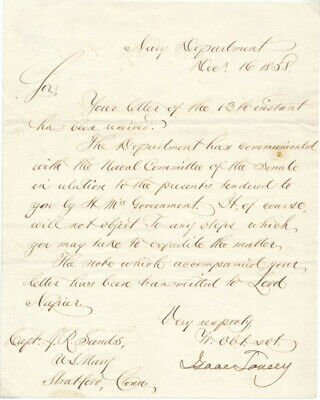 Navy Department
Decr. 16 1858.
Sir:
Your letter of the 13th instant
has been received.
The Department has communicated
with the Naval Committee of the Senate
in relation to the presents tendered to
you by H. M's Government. It, of course,
will not object to any steps which
you may take to expedite the matter.
The note which accompanied your
letter has been transmitted to Lord
Napier.
Very respecty
Yr. Obt. svt.
Isaac Toucey
Capt. J. R. Sands,
U S Navy
Stratford, Conn.